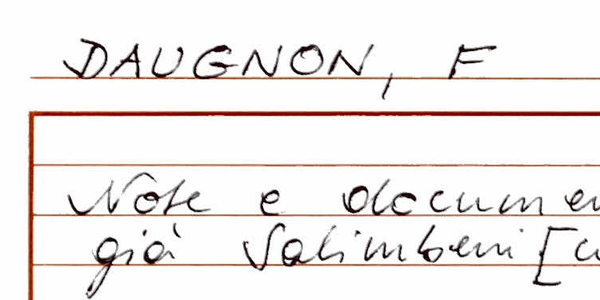 DAUGNON, F
Note e documen
già Salimbeni [